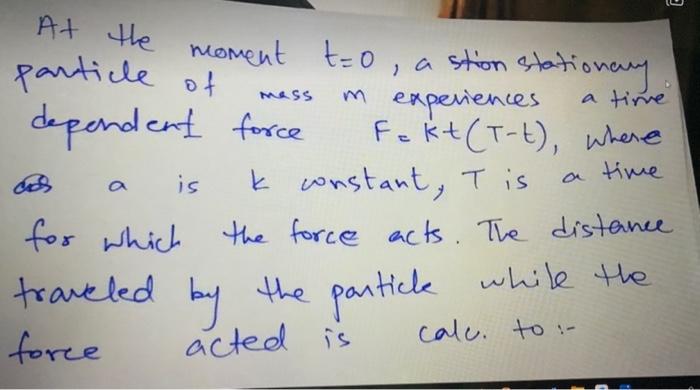 At the moment t=0, a stion stationary
particle of mass m experiences a time
dependent force F = kt(T-t), where
a is k constant, T is a time
for which the force acts. The distance
traveled by the particle while the
force acted is calc. to :-